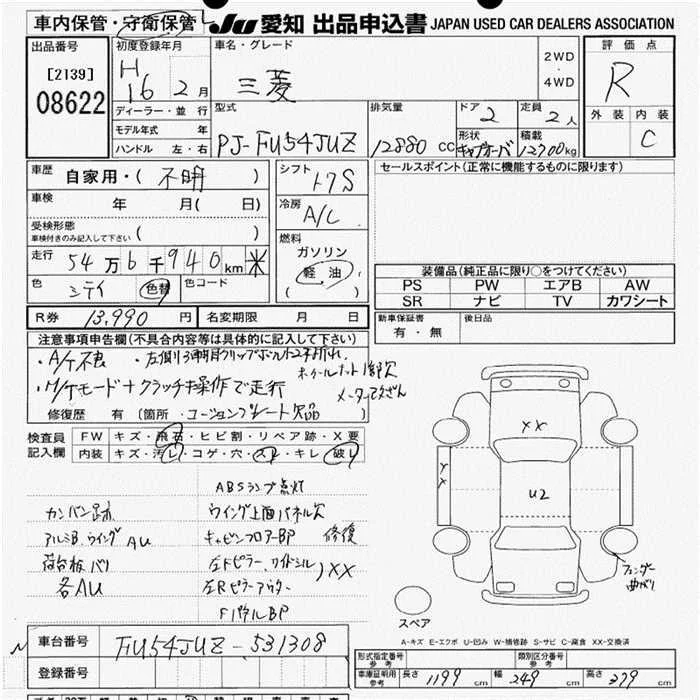 車内保管・守衛保管 JU 愛知 出品申込書 JAPAN USED CAR DEALERS ASSOCIATION
出品番号 初度登録年月 車名・グレード 2WD 評価点
[2139] H 16 年 2月 三菱 ・ 4WD R
08622 ディーラー・並行 型式 排気量 ドア 2 定員 2人 外装 内装
モデル年式 年 形状 積載 C
ハンドル 左・右 PJ-FU54JUZ 12880 CC キャブオーバ 12700kg
車歴 自家用・( 不明 ) シフト セールスポイント(正常に機能するものに限ります)
車検 年 月( 日) ト7S
受検形態 ( ) 冷房
車検付きのみ記入して下さい A/C
走行 54万6千940km 米 燃料 ガソリン
色 シテイ 色替 色コード 軽油
( )
装備品(純正品に限り○をつけてください)
PS PW エアB AW
SR ナビ TV カワシート
R券 13,990円 名変期限 月 日 新車保証書 後日品
有・無
注意事項申告欄(不具合内容等は具体的に記入して下さい)
・A/C不良
ホイールナット1部欠
・M/Tモード+クラッチ操作で走行
メーター改ざん
修復歴 有(箇所・コーションプレート欠品 )
検査員 FW キズ・飛石・ヒビ割・リペア跡・X要
記入欄 内装 キズ・汚レ・コゲ・穴・スレ・キレ・破レ
ABSランプ点灯
カンバン跡 ウイング上面パネル欠
アルミB.ウイングAU キャビンフロアーBP 修復
荷台板バリ 左Fピラー、ワイドシル )XX
各AU 左Rピラーアウター
FパネルBP
XX
XX
U2
フェンダー曲がり
スペア
A-キズ E-エクボ U-凹み W-補修跡 S-サビ C-腐食 XX-交換済
車台番号 FU54JUZ-531308
登録番号
形式指定番号 参考 類別区分番号 参考
車庫証明用 参考 長さ 1199 cm 幅 249 cm 高さ 379 cm